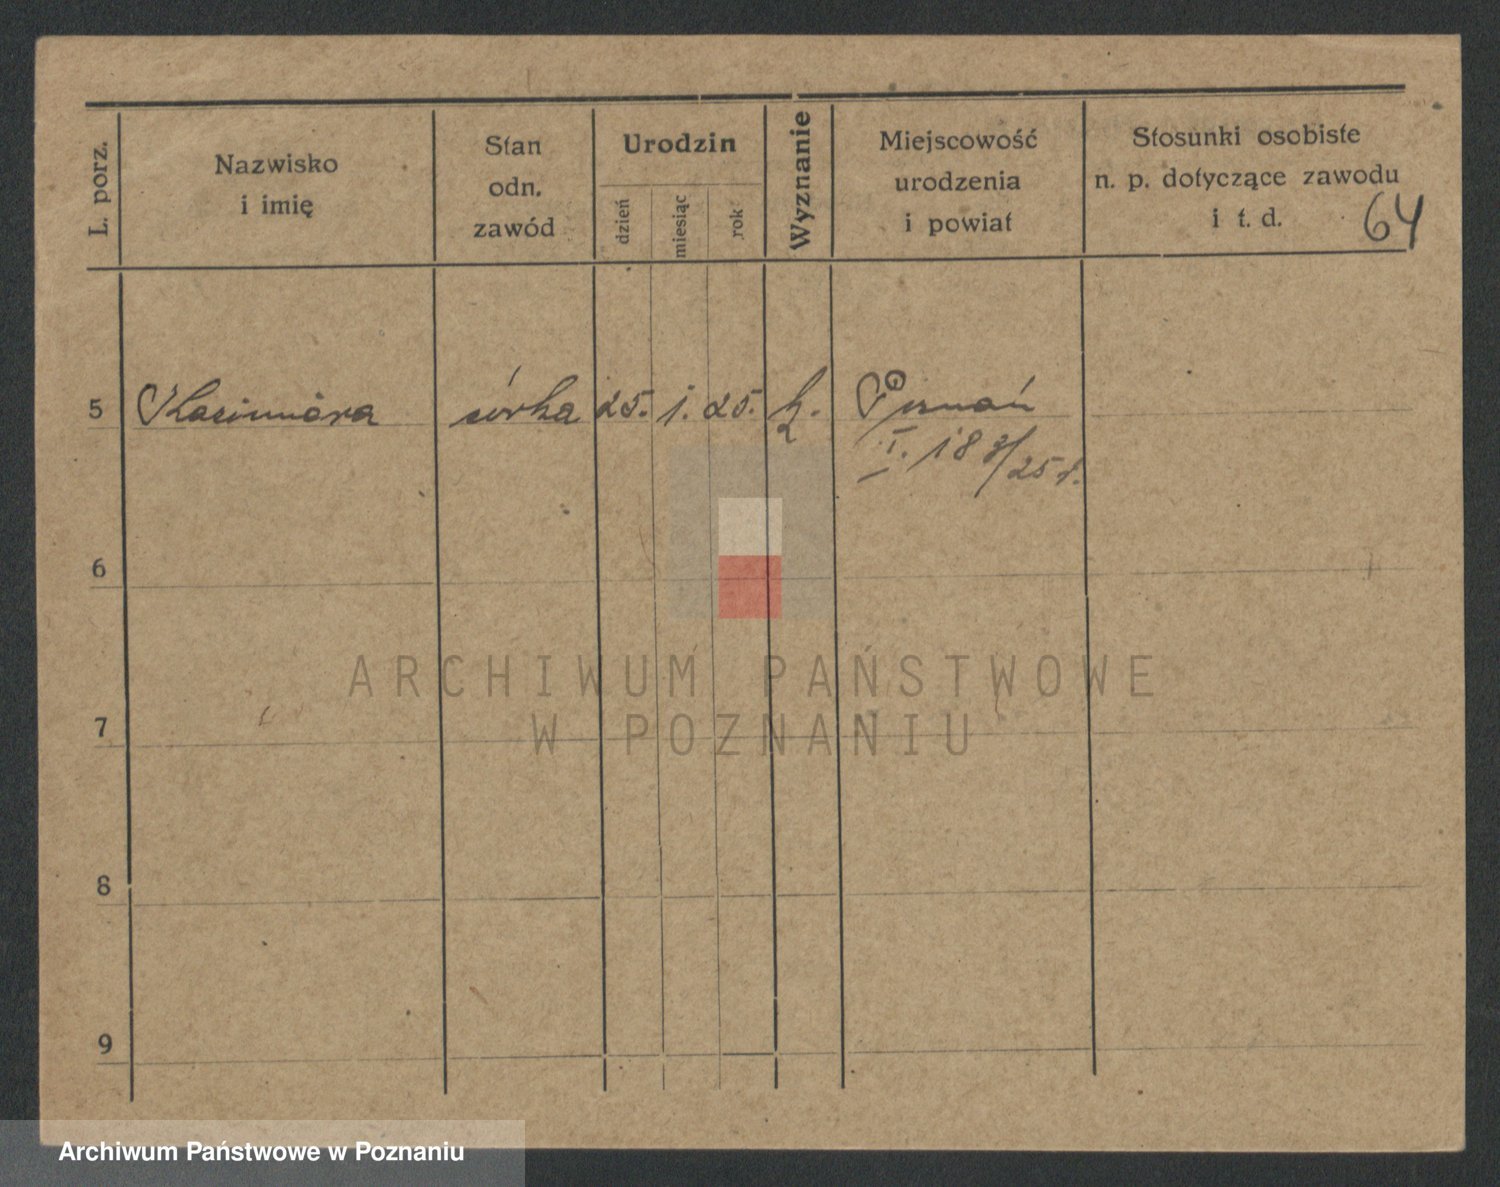 L. porz.
Nazwisko
i imię
Stan
odn.
zawód
Urodzin
dzień
miesiąc
rok
Wyznanie
Miejscowość
urodzenia
i powiat
Stosunki osobiste
n. p. dotyczące zawodu
i t. d.
64
5 Kazimiera córka 25. 1. 25. k. Poznań
I. 183/25 r.
6
7
8
9
ARCHIWUM PAŃSTWOWE
W POZNANIU
Archiwum Państwowe w Poznaniu